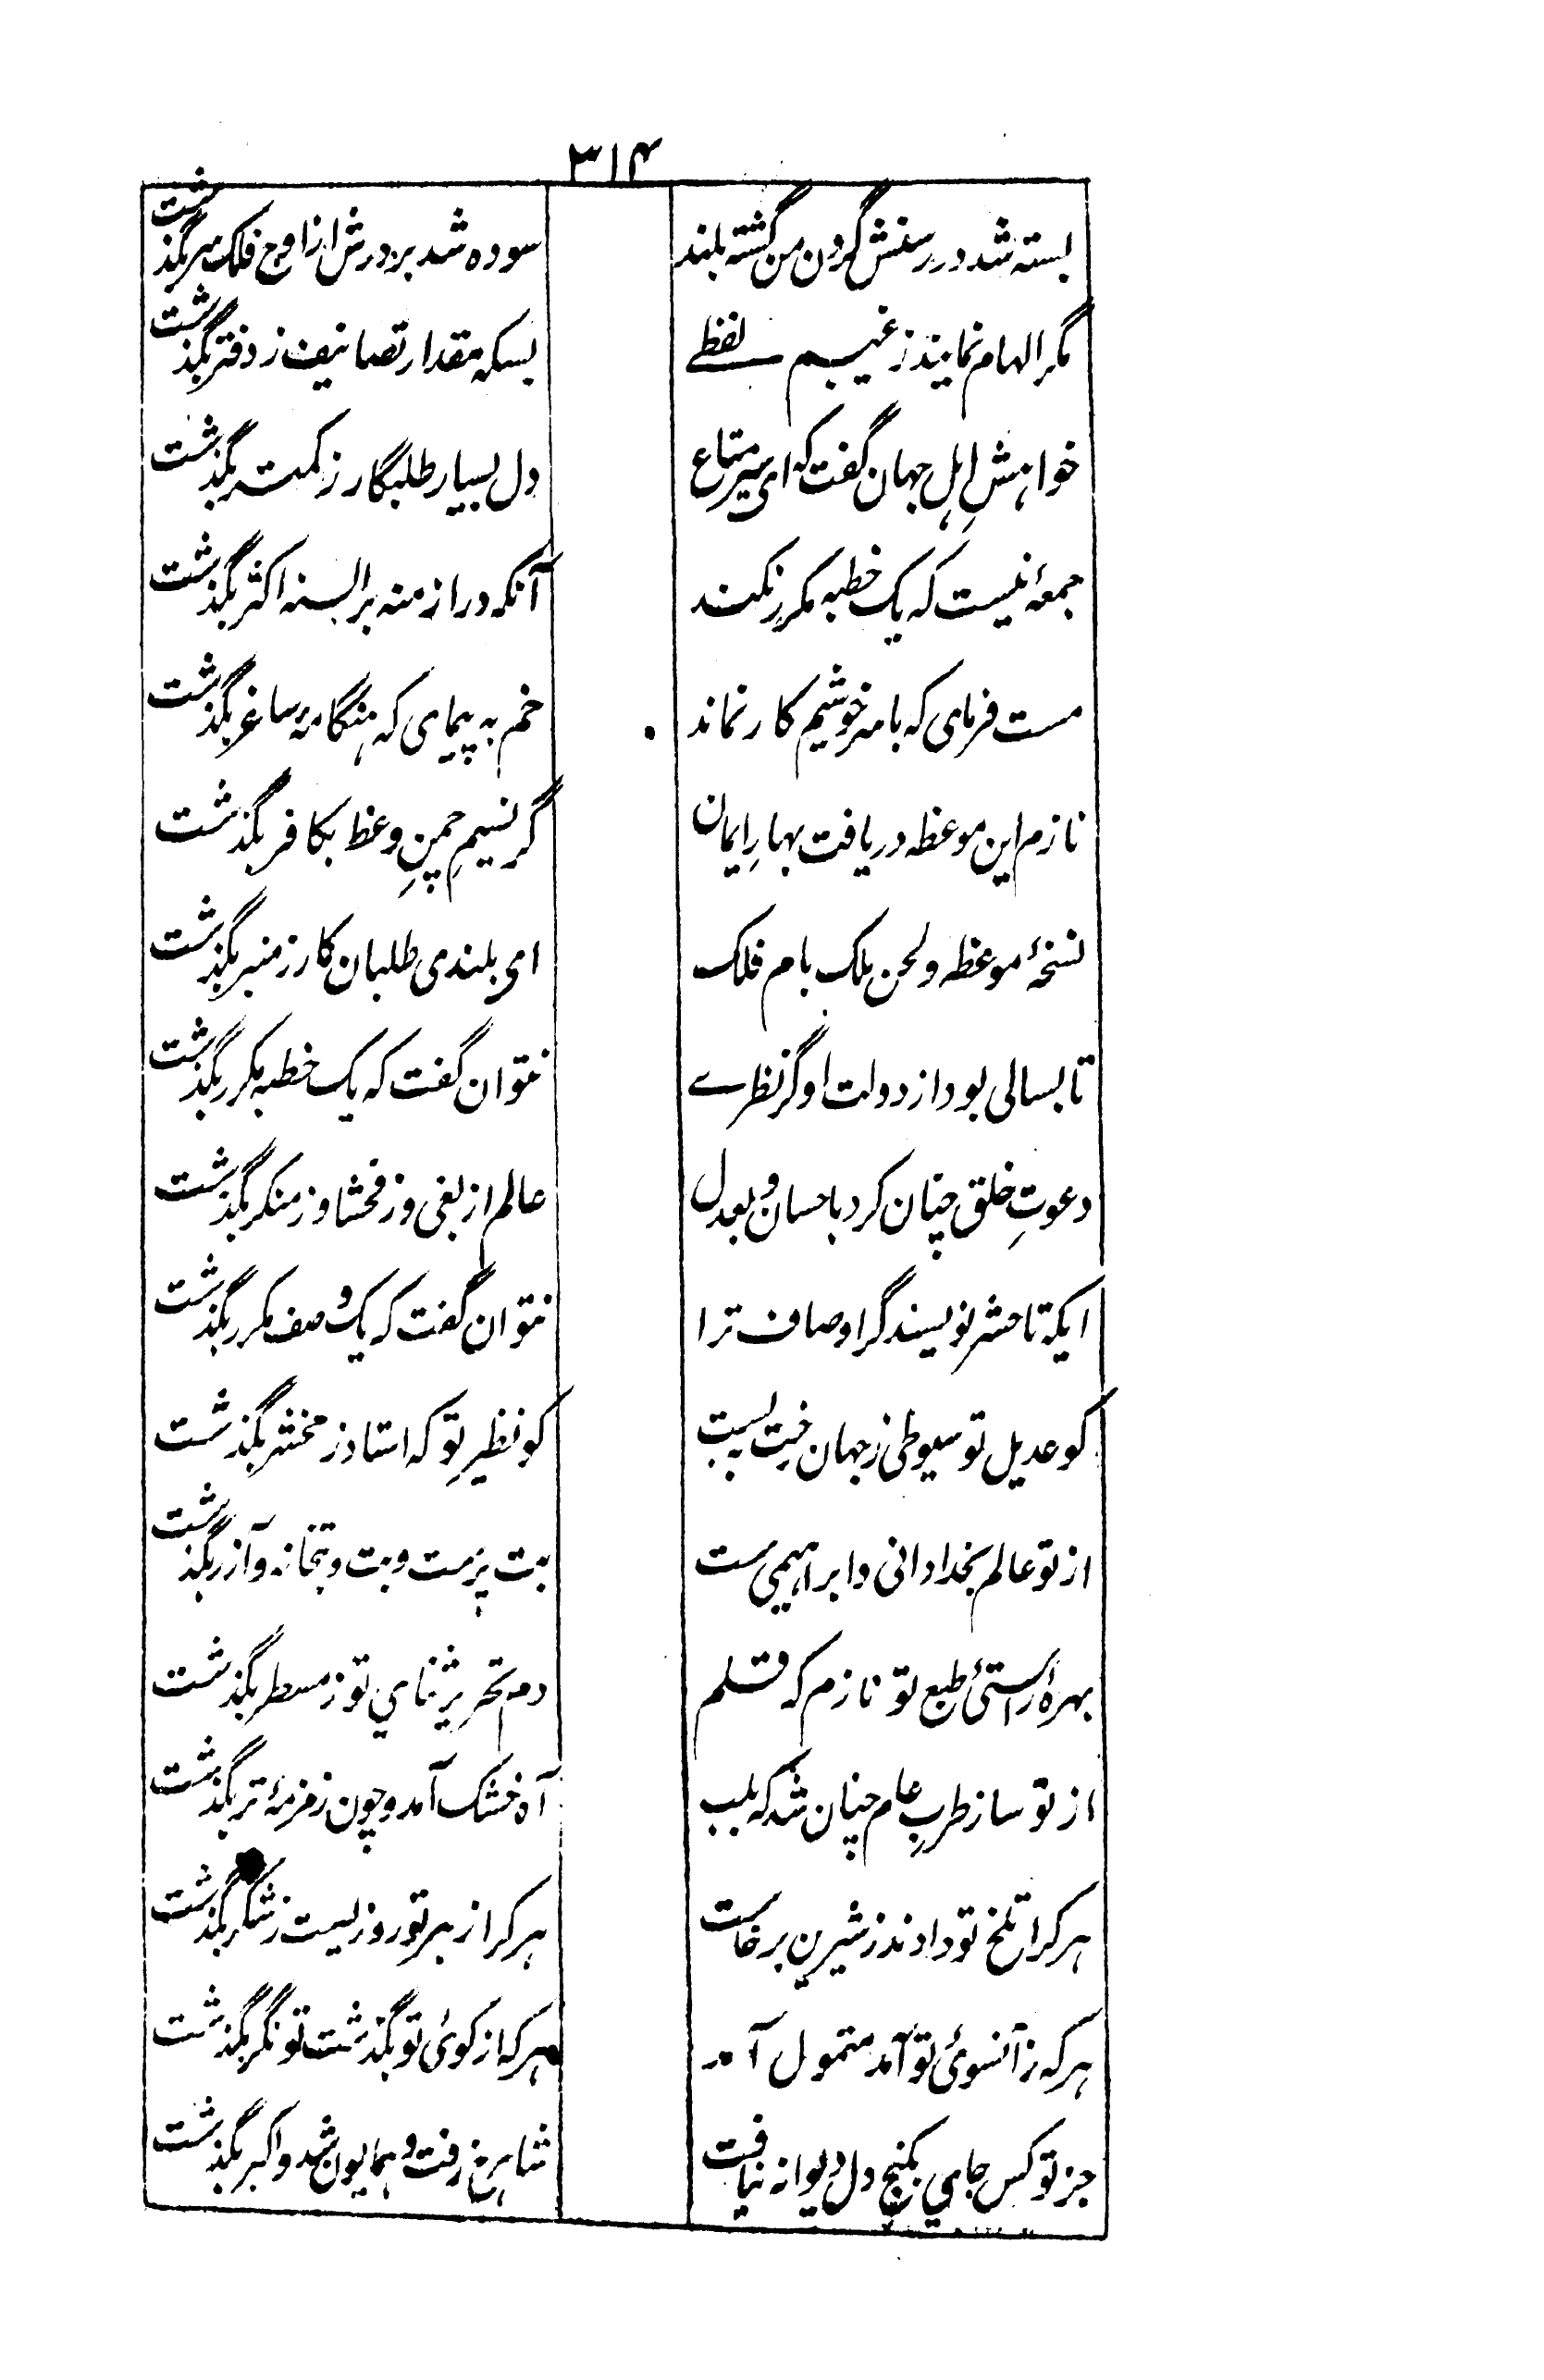 ۳۱۴
بسته شد در رسنش گردن من گشته بلند
سوده شد بر درش از اوج فلک سر بگذشت
مگر الهام نمایند ز غیبم لفظے
بسکه مقدار تصانیف ز دفتر بگذشت
خواہشِ اہل جہان گفت که ای میر متاع
دل بسیار طلبگار ز کمتر بگذشت
جمعۂ نیست که یک خطبه مکرر نکند
آنکه در ازمنه بر السنه اکثر بگذشت
مست فرمای که بامہ خوشیم کار نماند
خم به پیمای که ہنگامۂ ساغر بگذشت
نازم این موعظه دریافت بہارِ ایمان
گر نسیمِ چمنِ وعظ بکافر بگذشت
نسخۂ موعظه و لحن ملک بام فلک
ای بلندی طلبان کار ز منبر بگذشت
تا بسالی بود از دولت او گر نظرے
نتوان گفت که یک خطبه مکرر بگذشت
دعوتِ خلق چنان کرد باحسان و بعدل
عالم از بغی و ز فحشا و ز منکر بگذشت
ایکه تا حشر نویسند گر اوصاف ترا
نتوان گفت که یک وصف مکرر بگذشت
کو عدیل تو سیوطی ز جہان رخت ببست
کو نظیرِ تو که استاد زمخشر بگذشت
از تو عالم بخدادانی و ابراہیمی ست
بت پرست و بت و بتخانه و آزر بگذشت
بہرہ راستئ طبع تو نازم که قلم
دم تحریر ثنای تو ز مسطر بگذشت
از تو ساز طربِ عام چنان شد که بلب
آہ خشک آمد و چون زمزمۂ تر بگذشت
ہر کرا تلخ تو دادند ز شیرین برخاست
ہر کرا زہر تو روزیست ز شکر بگذشت
ہر که ز آنسوئ تو آمد متمول آمد
ہر که از کوئی تو بگذشت تونگر بگذشت
جز تو کس جای بکنج دل دیوانه نیافت
شاہرخ رفت و ہمایون شد و اکبر بگذشت